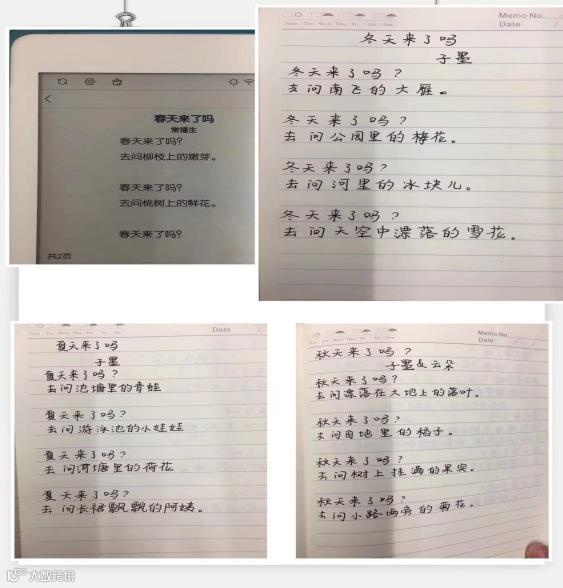 春天来了吗
常福生
春天来了吗?
去问柳枝上的嫩芽。
春天来了吗?
去问桃树上的鲜花。
春天来了吗?
共2页
Memo No.
Date
冬天来了吗
子墨
冬天来了吗?
去问南飞的大雁。
冬天来了吗?
去问公园里的梅花。
冬天来了吗?
去问河里的冰块儿。
冬天来了吗?
去问天空中漂落的雪花。
Date
夏天来了吗
子墨
夏天来了吗?
去问池塘里的青蛙
夏天来了吗?
去问游泳池的小娃娃
夏天来了吗?
去问荷塘里的荷花
夏天来了吗?
去问长裙飘飘的阿姨。
Memo No.
Date
秋天来了吗?
子墨&云朵
秋天来了吗?
去问漂落在大地上的落叶。
秋天来了吗?
去问田地里的稻子。
秋天来了吗?
去问树上挂满的果实。
秋天来了吗?
去问小路两旁的菊花。
大数跨境